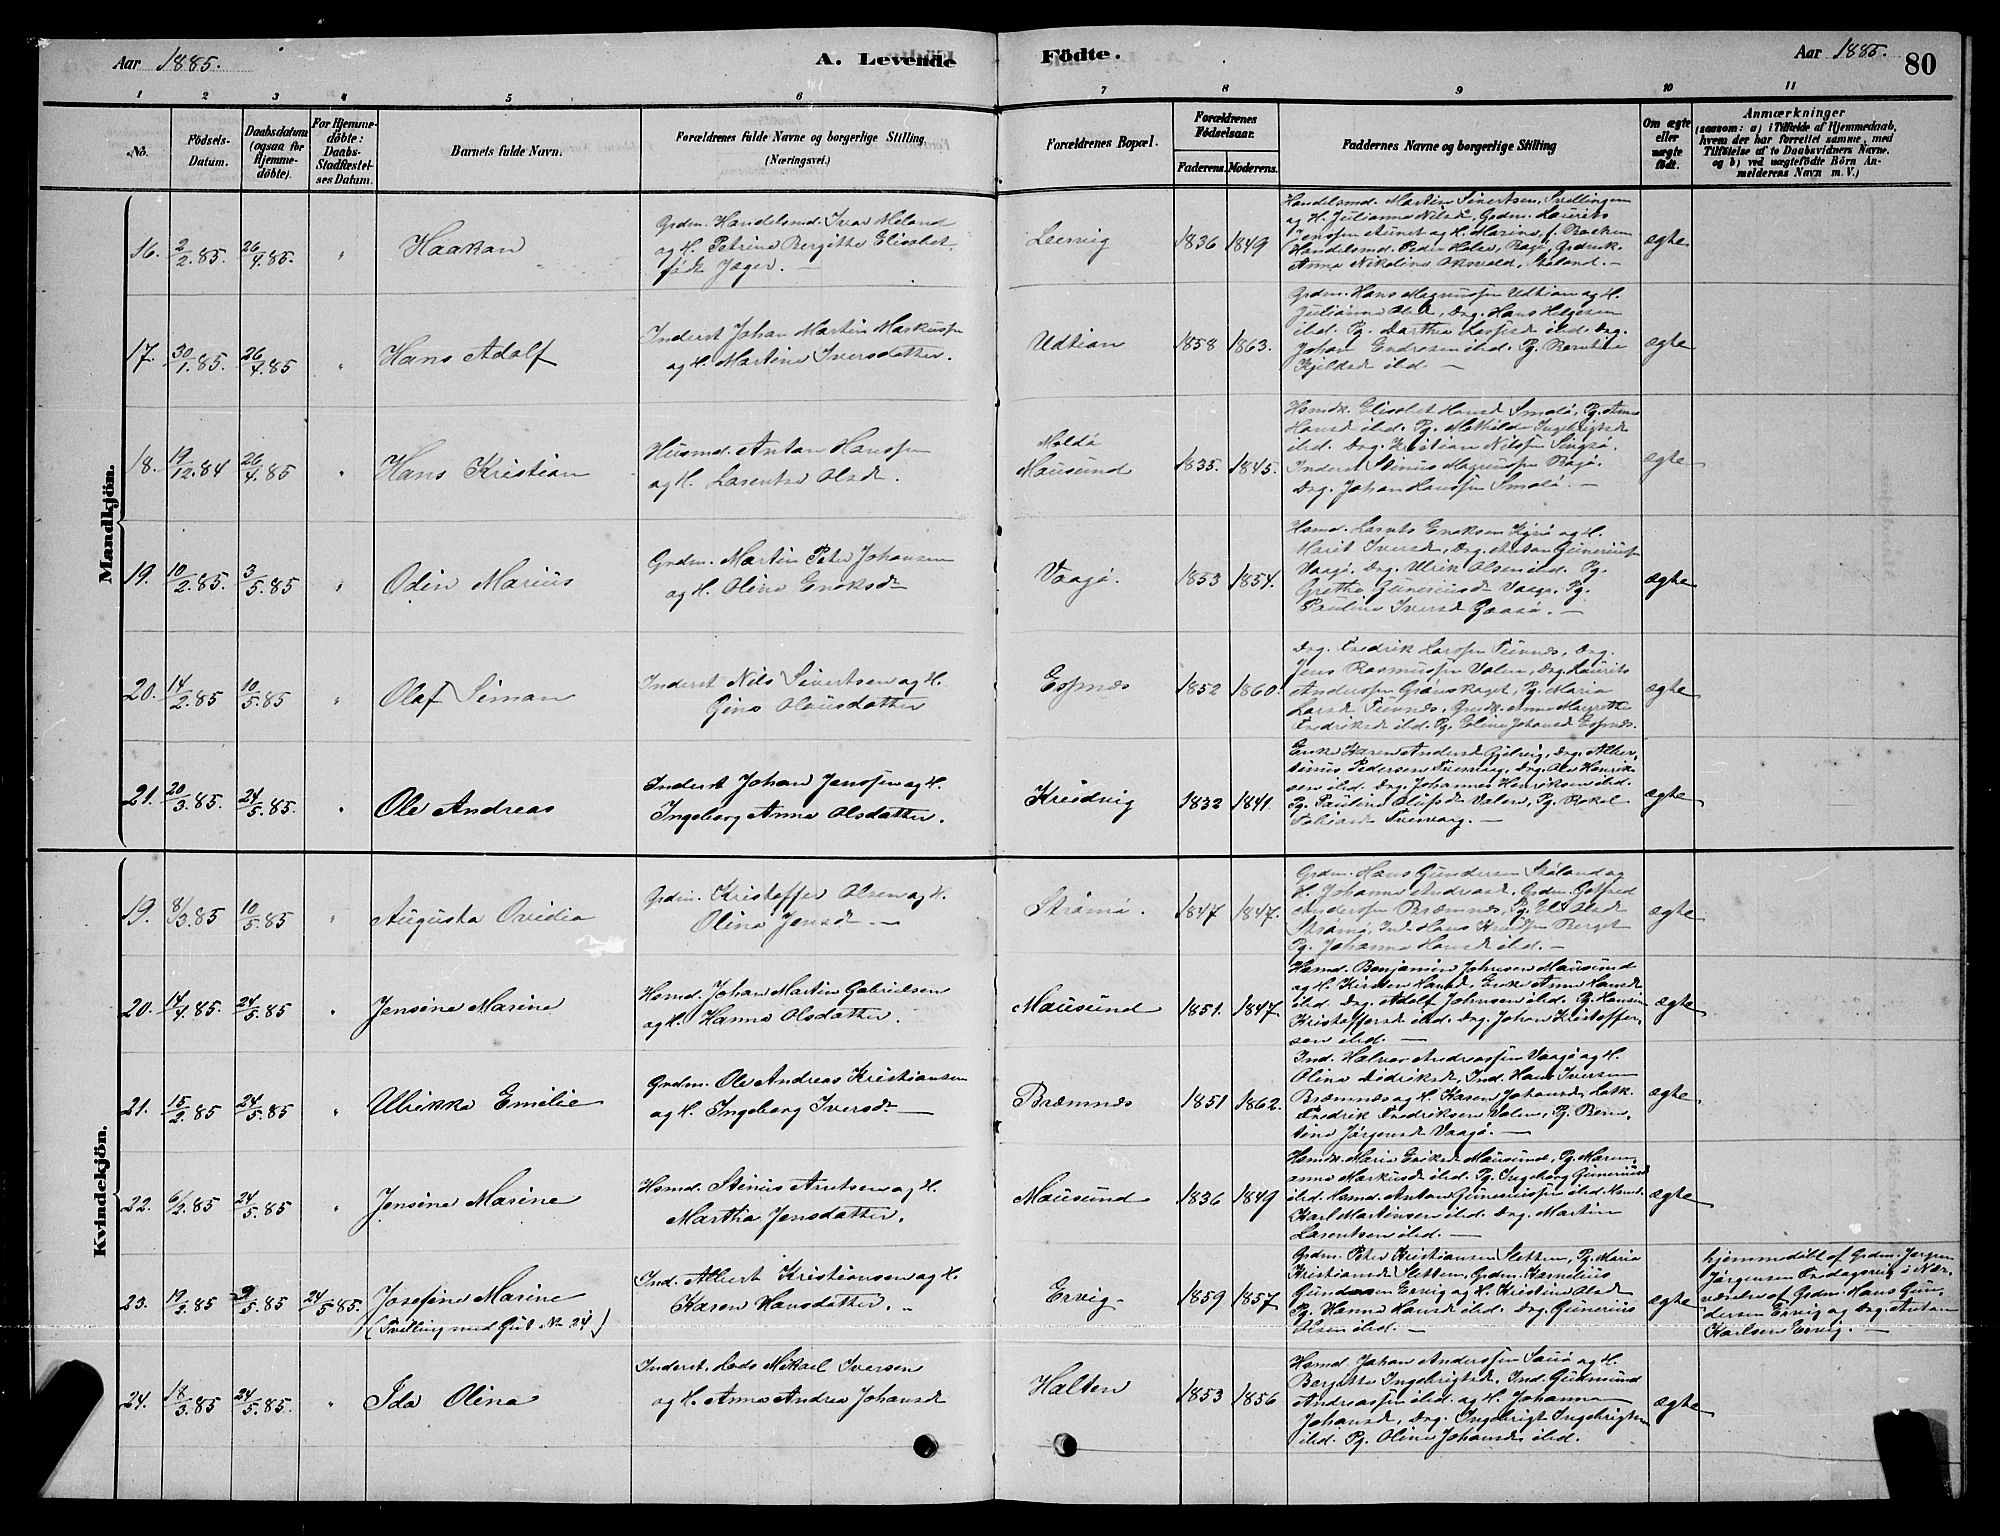 Aar 1885.
A. Levende
Födte.
Aar 1885.
80
1 2 3 4 5 6 7 8 9 10 11
No.
Födsels-
Datum.
Daabsdatum
(ogsaa for
Hjemme-
döbte).
For Hjemme-
döbte:
Daabs-
Stadfæstel-
ses Datum.
Barnets fulde Navn.
Forældrenes fulde Navne og borgerlige Stilling
(Næringsvei.)
Forældrenes Bopæl.
Forældrenes
Födselsaar.
Faderens. Moderens.
Faddernes Navne og borgerlige Stilling
Om ægte
eller
uægte
födt.
Anmærkninger
(saasom: a) i Tilfælde af Hjemmedaab,
hvem der har forrettet samme, med
Tilföielse af to Daabsvidners Navne,
og b) ved uægtefödte Börn An-
melderens Navn m. V.)
Mandkjön.
16. 2/2.85. 26/4.85. " Haakan
Grdm. Handelsmd. Ivar Meland
og H. Petrine Bergitte Elisabet
født Jæger. —
Leervig 1836 1849
Handelsmd. Martin Sivertsen,
og H. Julianna Nilsd, Grdm. Laurits
Jenssen Aunet og H. Marine,
Handelsmd. Peder Holm,
Anna Nikoline
ægte
17. 30/1.85. 26/4.85 " Hans Adolf
Inderst Johan Martin Markussn
og H. Martine Iversdatter.
Udtian 1858 1863.
Grdm. Hans Magnussn Udtian og H.
Julianna Olsd, Drg. Hans Helgesen
ibd. Pg. Darthea ibd. Drg.
Johan Endresen ibd. Pg. Berntine
Kjeldsd ibd. —
ægte
18. 19/12.84 26/4.85 " Hans Kristian
Husmd. Antan Hanssn
og H. Larentse Olsd.
Moldø
Mausund 1835. 1845.
Hsmdk. Elisabet Hansd Smolø, Pg. Anne
Hansd ibd. Pg. Mathilde Ingebrigtsd
ibd. Drg. Kristian Nilssn
Inderst Stinus Magnussn
Drg. Johan Hanssn Smolø. —
ægte
19. 10/2.85. 3/5.85 " Odin Marius
Grdm. Martin Peter Johansen
og H. Olina Eriksd
Vaagø. 1853 1854.
Hsmd. Larnts Eriksen og H.
Marit Iversd, Drg. Antan Guneriussn
Vaagø. Drg. Ulrik Olsen ibd. Pg.
Grethe Guneriusd Vaagø, Pg.
Pauline Iversd —
ægte
20. 14/2.85 10/5.85 " Olaf Siman
Inderst Nils Sivertsen og H.
Gina Olausdatter
Espnes 1852 1860.
Drg. Fredrik Larssn Drg.
Jens Rasmussn Valen, Drg. Laurits
Anderssn Grønskaget, Pg. Maria
Larsd Grdk. Anne Margrethe
Fredriksd ibd. Pg. Eline Johansd Espnes.
ægte
21. 20/3.85. 24/5.85. " Ole Andreas
Inderst Johan Jenssen og H.
Ingeborg Anna Olsdatter.
Kreidvig 1832 1841.
Enke Karen Andersd Gjelvig, Drg. Alber-
tinus Pedersen Drg. Ole Henrik-
sen ibd. Drg. Johannes Henriksen ibd.
Pg. Pauline Olufsd Valen, Pg. Rakel
Tobiasd —
ægte
Kvindekjön.
19. 8/3.85 10/5.85 " Augusta Ovidia
Grdm. Kristoffer Olsen og H.
Olina Jensd —
Strømø. 1847 1847.
Grdm. Hans Gundersen Støland og
H. Johanna Andreasd, Grdm. Gotfred
Anderssn Bræmnes, Pg. Olsd
Strømø, Ind. Hans Knudssn Berget
Pg. Johanna Hansd ibd. —
ægte
20. 14/4.85. 24/5.85 " Jensine Marine
Hsmd. Johan Martin Gabrielsen
og H. Hanna Olsdatter.
Mausund 1851. 1847.
Hsmd. Benjamin Johnsen Mausund
og H. Kirsten Hansd, Enke Anne Hansd
ibd. Drg. Adolf Johnsen ibd. Pg. Hansine
Kristoffersd ibd. Drg. Johan Kristoffer-
sen ibd. —
ægte
21. 15/2.85 24/5.85 " Ulrikka Emilie
Grdm. Ole Andreas Kristiansen
og H. Ingeborg Iversd —
Bræmnes 1851 1862.
Ind. Halvor Andreassn Vaagø og H.
Olina Didriksd, Ind. Hans Iversen
Bræmnes og H. Karen Johansd,
Fredrik Fredriksen Valen, Pg. Bern-
tine Jørgensd Vaagø. —
ægte
22. 6/2.85 24/5.85 " Jensine Marine
Hsmd. Stinus Arntsen og H.
Martha Jensdatter.
Mausund 1836 1849
Hsmdk. Maria Eriksd Mausund, Pg. Maren-
anna Markusd ibd. Pg. Ingeborg Guneriusd
ibd. Hsmd. Antan Guneriussn ibd.
Karl Martinsen ibd. Drg. Martin
Larentsen ibd. —
ægte
23. 19/3.85 9/5.85 24/5.85. Josefine Marine
(Tvilling med Gut No 24)
Ind. Albert Kristiansen og H.
Karen Hansdatter. —
Ervig. 1859 1857
Grdm. Peter Kristiansen Sletten, Pg. Maria
Kristiansd Sletten, Grdm. Kornelius
Gundersen Ervig og H. Kristine Olsd
Pg. Hanna Hansd ibd. Drg. Gunerius
Olsen ibd. —
ægte
hjemmedøbt af Grdm. Jørgen
Jørgensen i Nær-
værelse af Grdm. Hans Gun-
dersen Ervig og Drg. Antan
Karlsen Ervig. —
24. 18/3.85 24/5.85. " Ida Olina
Inderst. Lods Mikael Iversen
og H. Anna Andrea Johansd
Halten 1853 1856
Hsmd. Johan Anderssn og H.
Bergitte Ingebrigtsd, Ind. Gudmund
Andreassn ibd. og H. Johanna
Johansd, Drg. Ingebrigt Ingebrigtsen
ibd. Pg. Olina Johansd ibd.
ægte